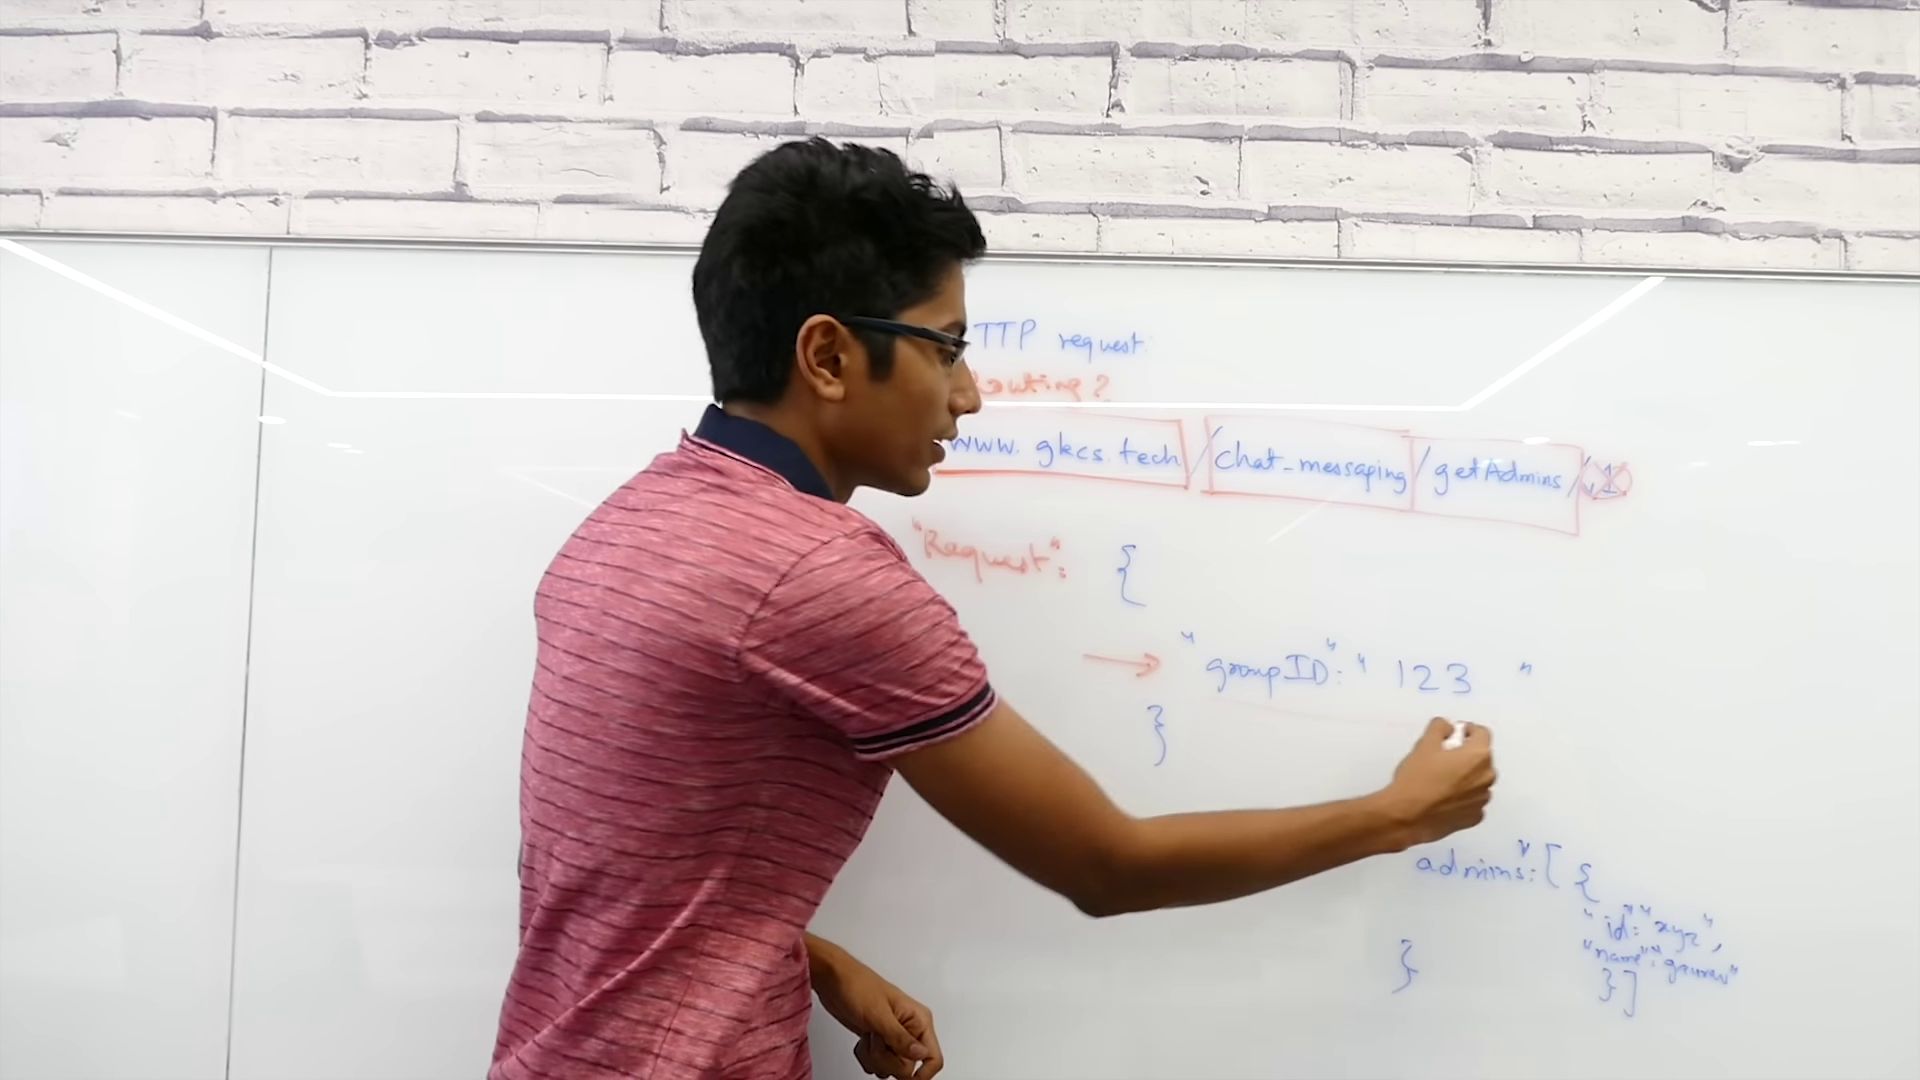 TTP request.
Routing?
www.gkcs.tech/chat_messaging/getAdmins/
"Request": {
"groupID": "123"
}
admins": [ {
"id": "xyz",
} "name": "gaurav"
} ]